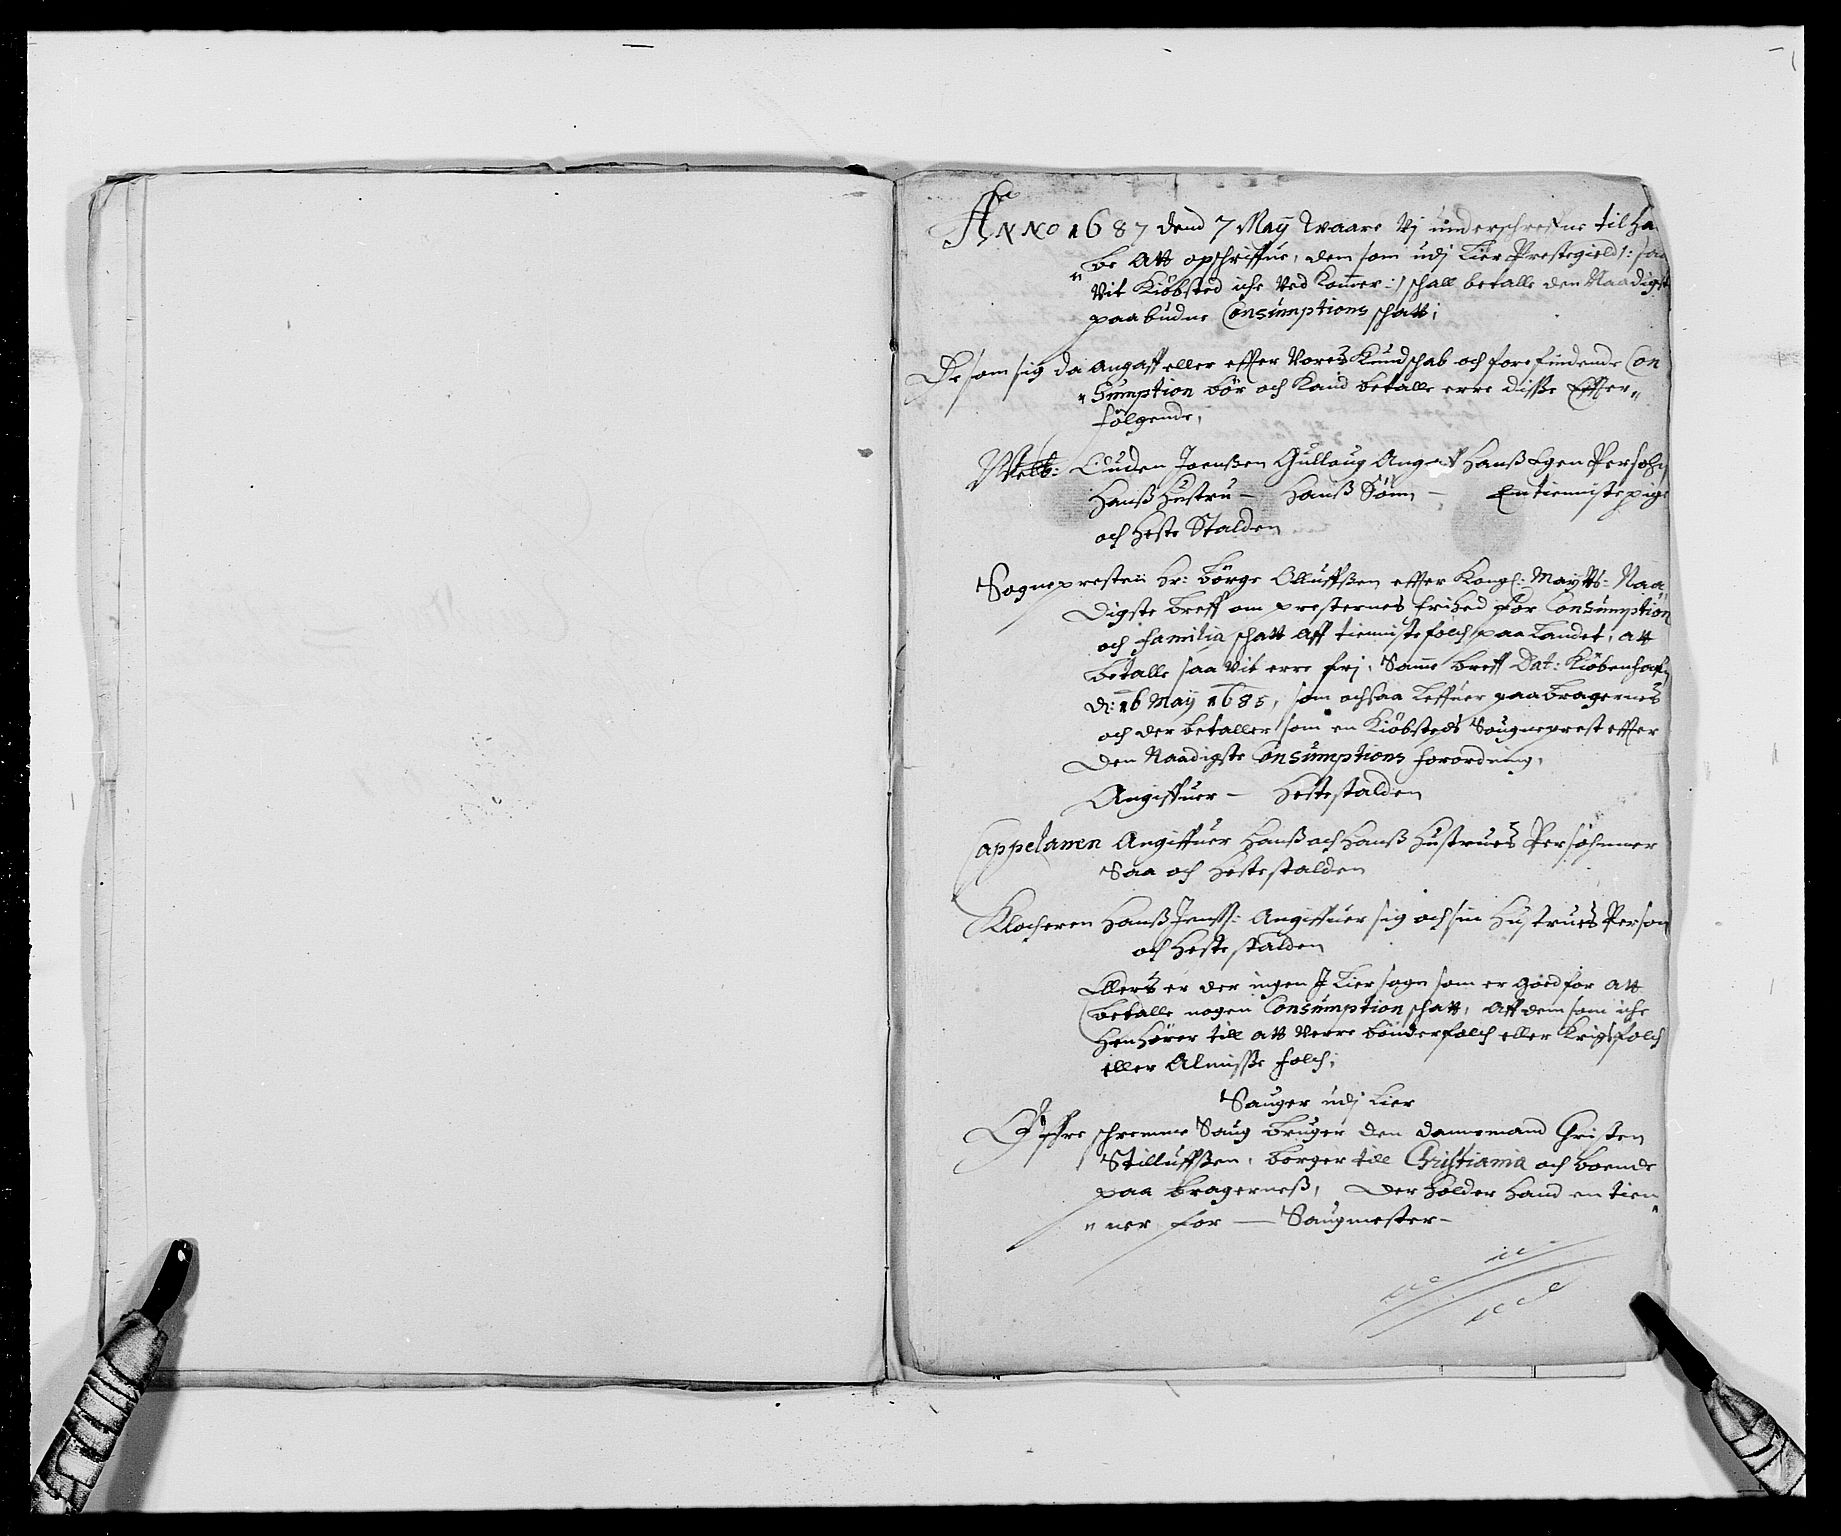 Anno 1687 dend 7 Maij Waare Vj underschrefne til ha
be Att opschriffue, dem som udj Lier Prestegield /: saa
vit Kiöbsted iche ved Kommer :/ schall betalle den Naadigst
paabudne Consumptions schatt;
De som sig da angaff eller effter Vores Kundschab och forefindende Con
Sumption bör och Kand betalle erre disse Effter
fölgende,
Welb: Auden Joenßen Gullaug Angaf Hanß Egen Persohn
Hanß Hustru — Hanß Sönn — En tienniste pige
och Heste Stalden
Sogneprestenn Hr: Börge Olluffßen effter Kongl: Maytts: Naa
digste breff om presternes frihed for Consumption
och familia schatt Aff tienniste folch paa Landet, att
betalle saa vit erre frj, Samme breff Dat: Kiöbenhafn
d: 16 Maij 1685, som ochsaa Leffuer paa bragernes
och der betaller som en Kiöbsteds Sougneprest effter
den Naadigste Consumptions forordning,
Angiffuer — Hestestalden
Cappelanen Angiffuer Hanß och Hanß Hustrues Persohnner
Saa och Hestestalden
Klocheren Hanß Jenss: Angiffuer sig och sin Hustrues Person
och Hestestalden
Ellers er der ingen J Lier sogn som er goed for att
betalle nogen Consumption schatt, Aff dem som iche
henhörer till att verre bönderfolch eller Krigsfolch
eller Almisse folch;
Sauger udj Lier
schremme Saug bruger den dannemand Christen
Stilluffßen, borger till Christiania och boende
paa bragerneß, Der holder hand en tien
ner for — Saugmester —